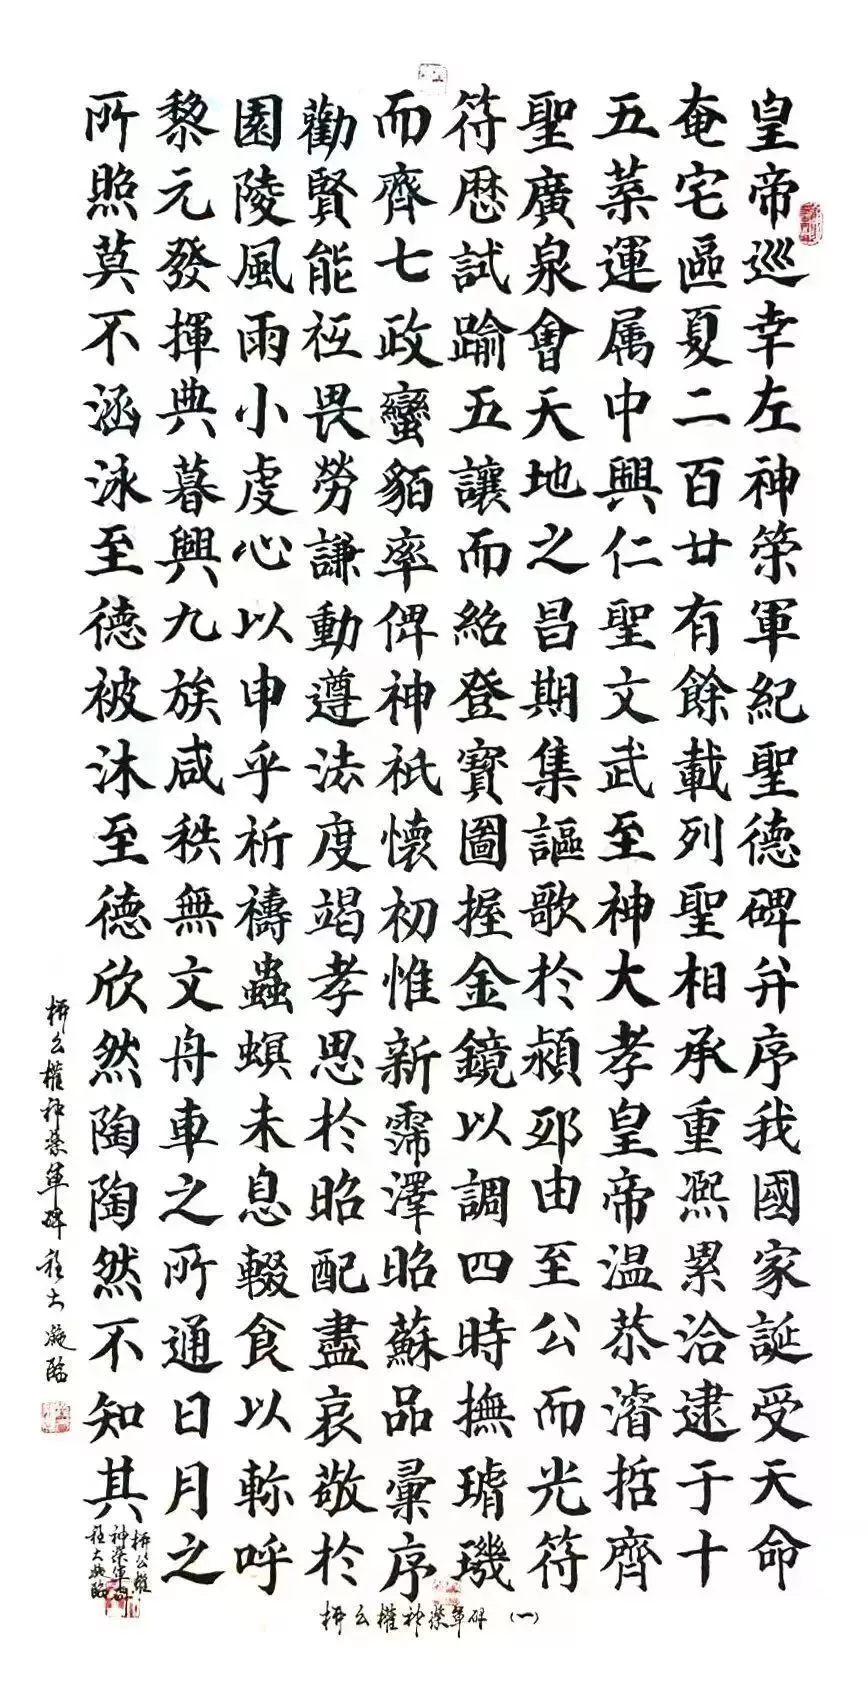 皇帝巡幸左神策軍紀聖德碑并序我國家誕受天命
奄宅區夏二百廿有餘載列聖相承重熙累洽逮于十
五葉運属中興仁聖文武至神大孝皇帝温恭濬哲齊
聖廣泉會天地之昌期集謳歌於潁邸由至公而光符
符歷試踰五讓而紹登寶圖握金鏡以調四時撫璿璣
而齊七政蠻貊率俾神祇懷初惟新霈澤昭蘇品彙序
勸賢能祗畏勞謙動遵法度竭孝思於昭配盡哀敬於
園陵風雨小虔心以申乎祈禱蟲螟未息輟食以軫呼
黎元發揮典暮興九族咸秩無文舟車之所通日月之
所照莫不涵泳至德被沐至德欣然陶陶然不知其
柳公權神策軍碑
程大凝臨
柳公權神策軍碑程大凝臨
柳公權神策軍碑（一）